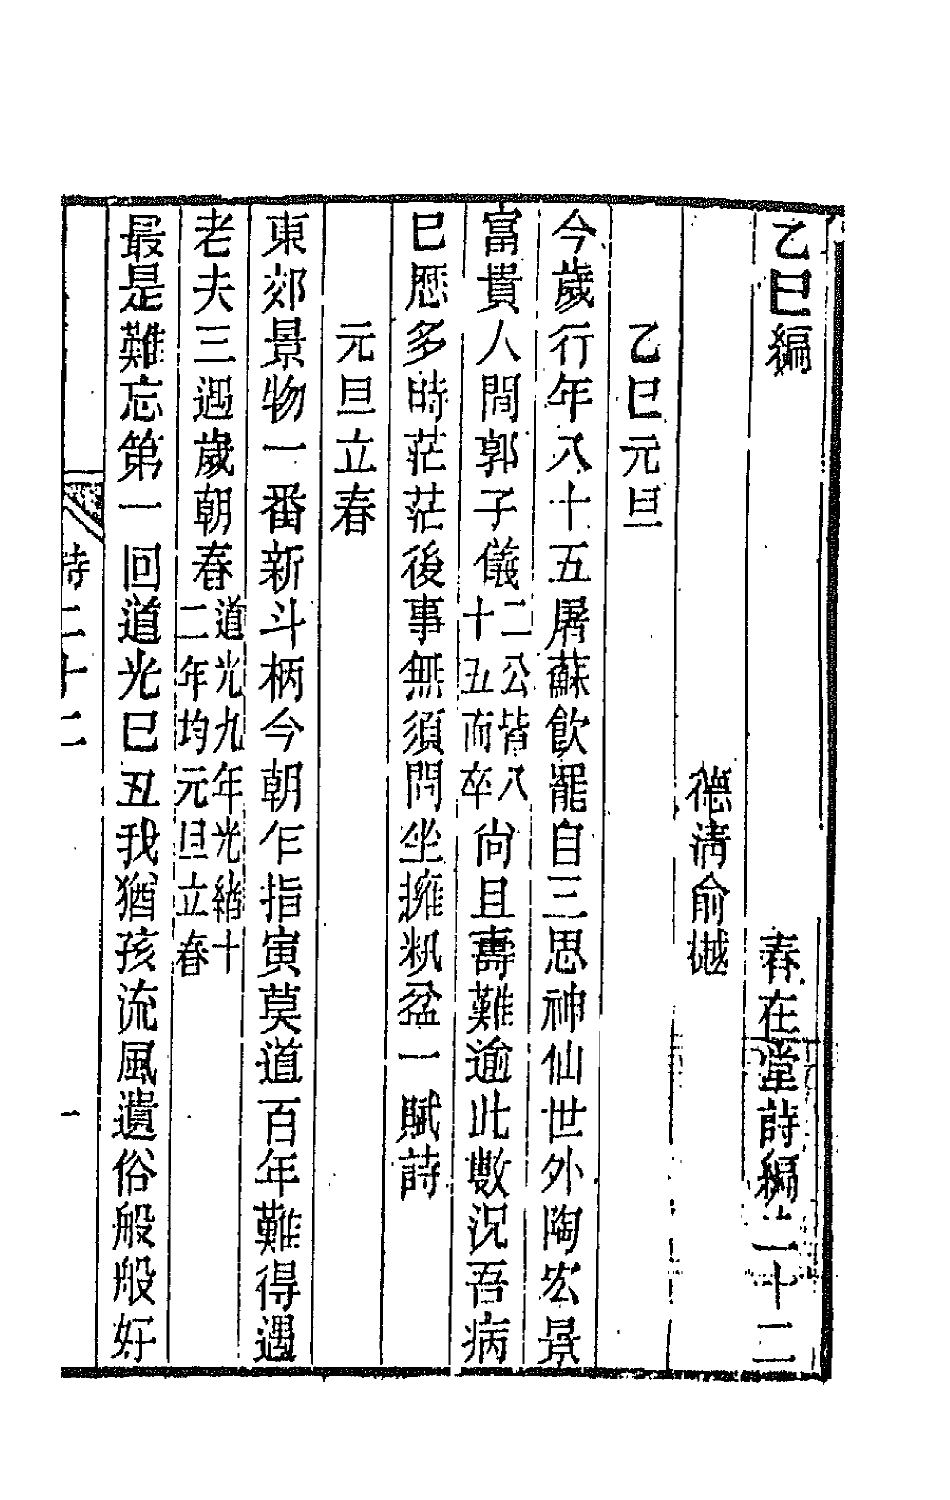 乙巳編　春在堂詩編二十二
德清俞樾
乙巳元旦
今歲行年八十五屠蘇飲罷自三思神仙世外陶宏景
富貴人間郭子儀二公皆八十五而卒尚且壽難逾此數況吾病
已歷多時茫茫後事無須問坐擁粃盆一賦詩
元旦立春
東郊景物一番新斗柄今朝乍指寅莫道百年難得遇
老夫三遇歲朝春道光九年光緒十二年均元旦立春
最是難忘第一回道光己丑我猶孩流風遺俗般般好
詩二十二
一